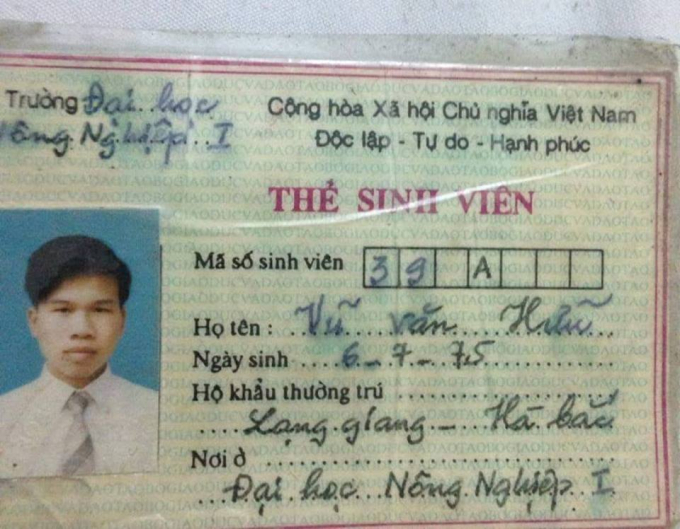 Trường Đại học
Nông Nghiệp I
Cộng hòa Xã hội Chủ nghĩa Việt Nam
Độc lập - Tự do - Hạnh phúc
THẺ SINH VIÊN
Mã số sinh viên 39 A
Họ tên : Vũ văn Hữu
Ngày sinh 6-7-75
Hộ khẩu thường trú
Lạng giang - Hà bắc
Nơi ở
Đại học Nông Nghiệp I